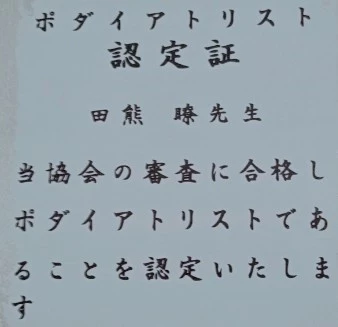 ポダイアトリスト
認定証
田熊　瞭先生
当協会の審査に合格し
ポダイアトリストであ
ることを認定いたしま
す